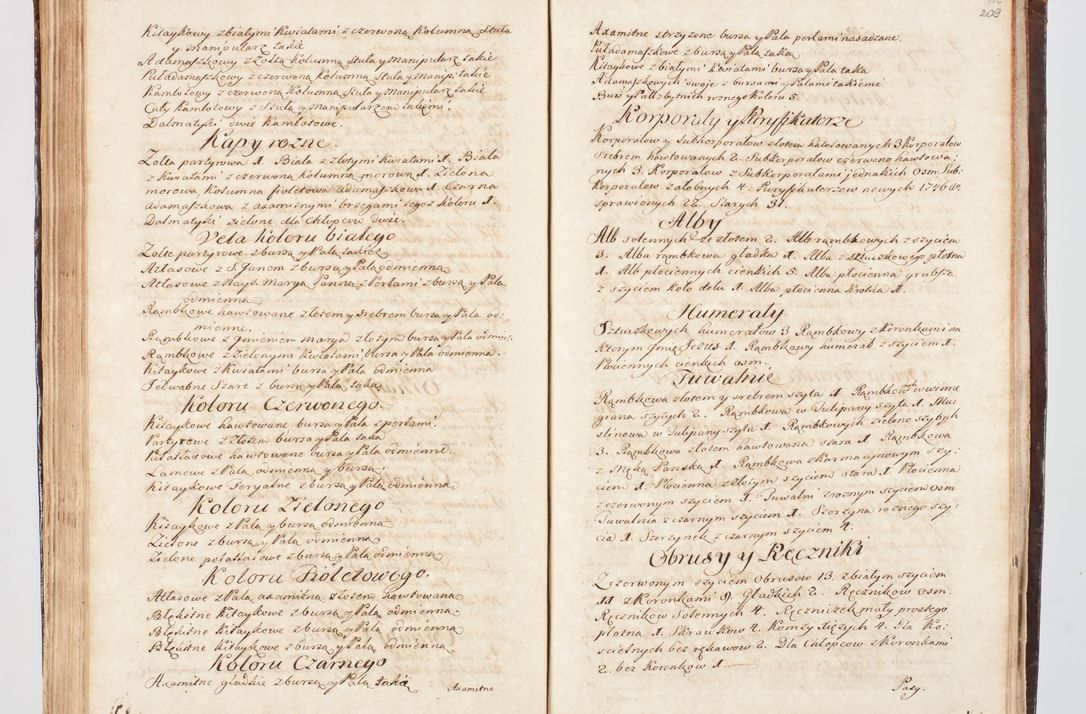 Kitaykowy z białymi Kwiatami z czerwoną Kolumną Stuła
y Manipularz takie
Adtamaszkowy z żółtą Kolumną Stułą y Manipularz takie
Puładamaszkowy z czerwoną Kolumną Stułą y Manip: takie
Kamlotowy z czerwoną Kolumną Stułą y Manipularz takie
Cały Kamlotowy z Stułą y Manipularzem takiemi
Dalmatyki dwie Kamlotowe.
Kapy rozne.
Zołta partyrowa 1. Biała z złotymi Kwiatami 1. Biała
z Kwiatami z czerwoną Kolumną morowa 1. Zielona
morowa Kolumna fioletowa adamaszkowa 1. Czarna
adamaszkowa z axamitnymi brzegami tegoż Koloru 1.
Dalmatyki zielone dla Chłopcow dwie.
Vela Koloru białego
Zołte partyrowe z bursą y Palą takież
Atłasowe z S. Janem z bursą y Palą odmienną
Atłasowe z Nayś: Maryą Panną z Perłami z bursą y Palą
odmienną
Rąmbkowe hawtowane złotem y srebrem bursą y Pala od=
mienne.
Rąmbkowe z Jmieniem Marya złotym bursą y Palą odmien:
Rąmbkowe z Zielonymi Kwiatami, bursą y Palą odmienną.
Kitaykowe z Kwiatami bursą y Palą odmienną
Jedwabne Szare z bursą y Palą taką
Koloru Czerwonego.
Kitaykowe hawtowane bursa y Pala z perłami.
Partyrowe z złotem bursą y Pala taka
Pułatłasowe hawtowane bursa y Pala odmienne.
Lamowe z Palą odmienną y bursą.
Kitaykowe Feryalne z bursą y Palą odmienną
Koloru Zielonego
Kitaykowe z Palą y bursą odmienną
Zielone z bursą y Palą odmienną
Zielone pułatłasowe z bursą y Palą odmienną
Koloru Fioletowego.
Atłasowe z Palą axamitną złotem hawtowaną
Błękitne Kitaykowe z bursą y Palą odmienną.
Błękitne Kitaykowe z bursą y Palą odmienną
Błękitne Kitaykowe z bursą y Palą odmienną
Koloru Czarnego
Axamitne gładkie z bursą y Palą taką
Axamitne
209
Axamitne strzyżone bursa y Pala perłami nasadzane.
Puładamaszkowe z bursą y Palą taką
Kitaykowe z białymi Kwiatami bursą y Palą taką
Adamaszkowych dwoje z bursami y Palami takiemi
Burs y Pall zbytnich roznego Koloru 5.
Korporały y Puryfikatorze
Korporałow y Subkorporałow złotem hawtowanych 3 Korporałow
srebrem hawtowanych 2. Subkorporałow czerwono hawtowa:
nych 3. Korporałow z Subkorporałami jednakich Osm Sub:
Korporałow żałobnych 4. Puryfikatorzow nowych 1746
sprawionych 22. Starych 31.
Alby
Alb solennych ze złotem 2. Alb rąmbkowych z szyciem
3. Alba rąmbkowa gładka 1. Alba z sztuczkowego płotna
1. Alb płociennych cienkich 5. Alba płocienna grubsza
z szyciem koło dołu 1. Alba płocienna krotka 1.
Humerały.
Sztuczkowych humerałow 3 Rąmbkowy z Koronkami na
Ktorym Jmię Jezus 1. Rąmbkawy humerał z szyciem 1.
Płociennych cienkich osm.
Tuwalnie
Rąmbkowa złotem y srebrem szyta 1 Rąmbkowych w winne
grana szytych 2. Rąmbkowa w Tulipany szyta 1. Mu:
slinowa w Tulipany szyta 1. Rąmbkowych zielono szytych
3. Rąmbkowa złotem hawtowana stara 1 Rąmbkowa
z Męką Pańską 1. Rąmbkowa z Karmazynowym szy:
ciem 1. Płocienna z żółtym szyciem stara 1. Płocienna
z czerwonym szyciem 1. Tuwalni z roznym szyciem Osm
Tuwalnia z czarnym szyciem 1. Szerzyna roznego szy:
cia 1. Szerzynek z czarnym szyciem 4.
Obrusy y Ręczniki
Z czerwonym szyciem Obrusow 13. z białym szyciem
11 z Koronkami 9. Gładkich 2. Ręcznikow osm.
Ręcznikow Solennych 4. Ręczniczek mały prostego
płotna 1. Skrawkow 4. Komży Xiężych 4. Dla Ko:
scielnych bez rękawow 2. Dla Chłopcow z Koronkami
2. bez Koronkow 1.
Pasy.